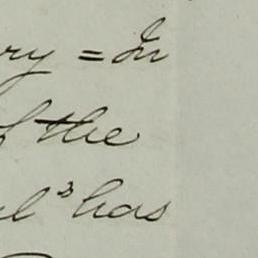 ry = In
of the
el ³ has